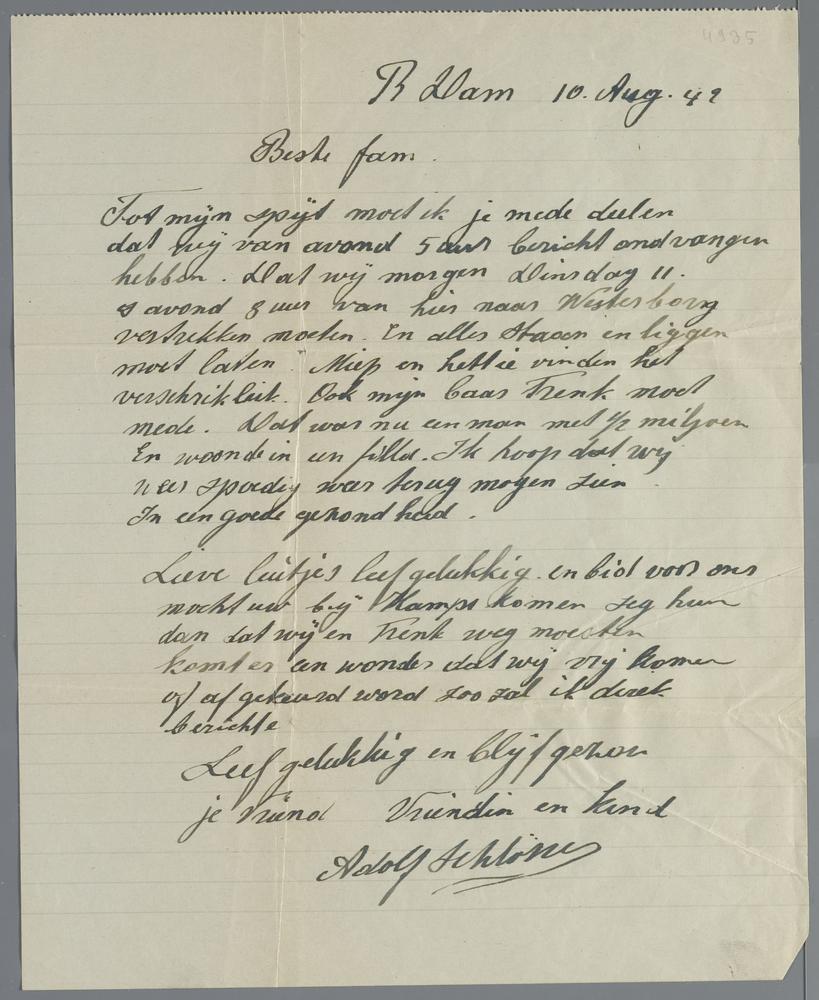 4935
R Dam 10. Aug. 42
Beste fam.
Tot mijn spijt moet ik je mede deelen
dat wij van avond 5 uur bericht ondvangen
hebben. Dat wij morgen Dinsdag 11.
s avond 8 uur van hier naar Westerborg
vertrekken moeten. En alles staaen en liggen
moet laten. Miep en hettie vinden het
verschrikleik. Ook mijn baas Frenk moet
mede. Dat was nu een man met ½ miljoen
En woonde in een filla. Ik hoop dat wij
weer spoedig weer terug mogen zien.
In een goede gezondheid.
Lieve luitjes leef gelukkig en bid voor ons
mocht uw bij Kamps komen zeg hun
dan dat wij en Frenk weg moesten
komt er een wonder dat wij vrij komen
of af gekeurd word zoo zal ik direk
berichte
Leef gelukkig en blijf gezon
je vriend Vriendin en kind
Adolf